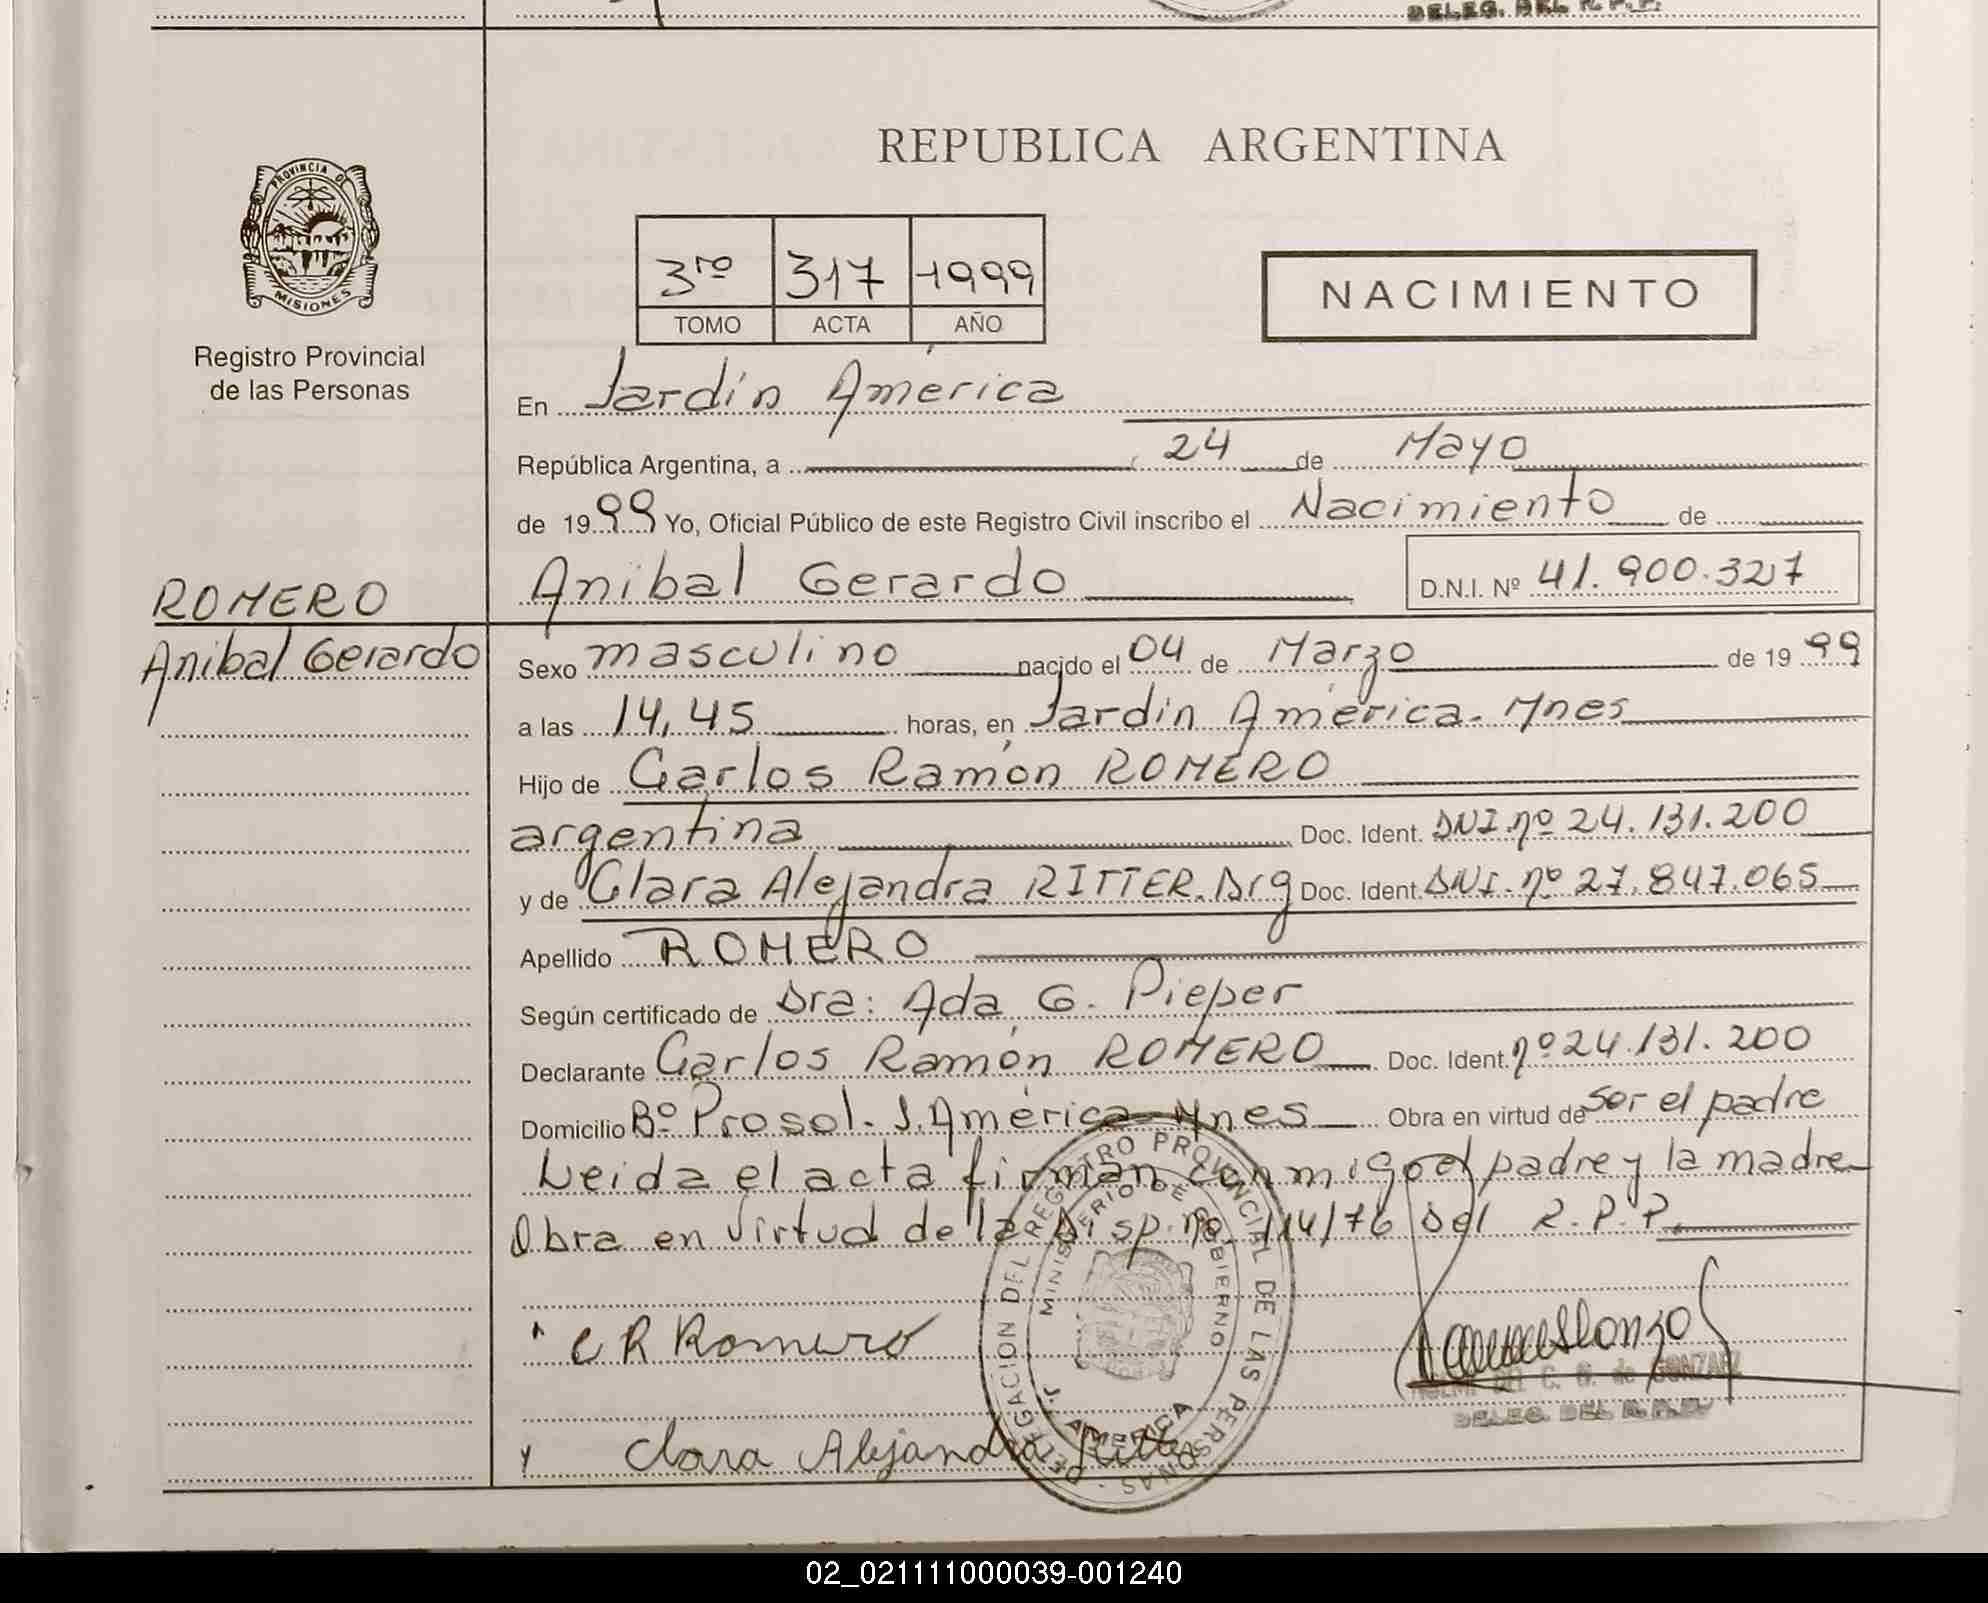 DELEG. DEL R.P.P.
REPUBLICA ARGENTINA
PROVINCIA DE
MISIONES
Registro Provincial
de las Personas
3ro 317 1999
TOMO ACTA AÑO
NACIMIENTO
En Jardín América
República Argentina, a 24 de Mayo
de 1999 Yo, Oficial Público de este Registro Civil inscribo el Nacimiento de
Anibal Gerardo D.N.I. Nº 41.900.327
ROMERO
Anibal Gerardo
Sexo masculino nacido el 04 de Marzo de 1999
a las 14,45 horas, en Jardín América. Mnes
Hijo de Carlos Ramón ROMERO
argentina Doc. Ident. DNI.nº 24.131.200
y de Clara Alejandra RITTER. Arg Doc. Ident. DNI. nº 27.847.065
Apellido ROMERO
Según certificado de Dra: Ada G. Pieper
Declarante Carlos Ramón ROMERO Doc. Ident. nº 24.131.200
Domicilio Bº Prosol. J. América Mnes Obra en virtud de ser el padre
Leida el acta firman conmigo el padre y la madre
Obra en virtud de la Disp. nº 114/76 del R.P.P.
C R Romero
DELEGACION DEL REGISTRO PROVINCIAL DE LAS PERSONAS
MINISTERIO DE GOBIERNO
J. AMERICA
C. G. de GONZALEZ
DELEG. DEL R.P.P.
y Clara Alejandra Ritter
02_021111000039-001240